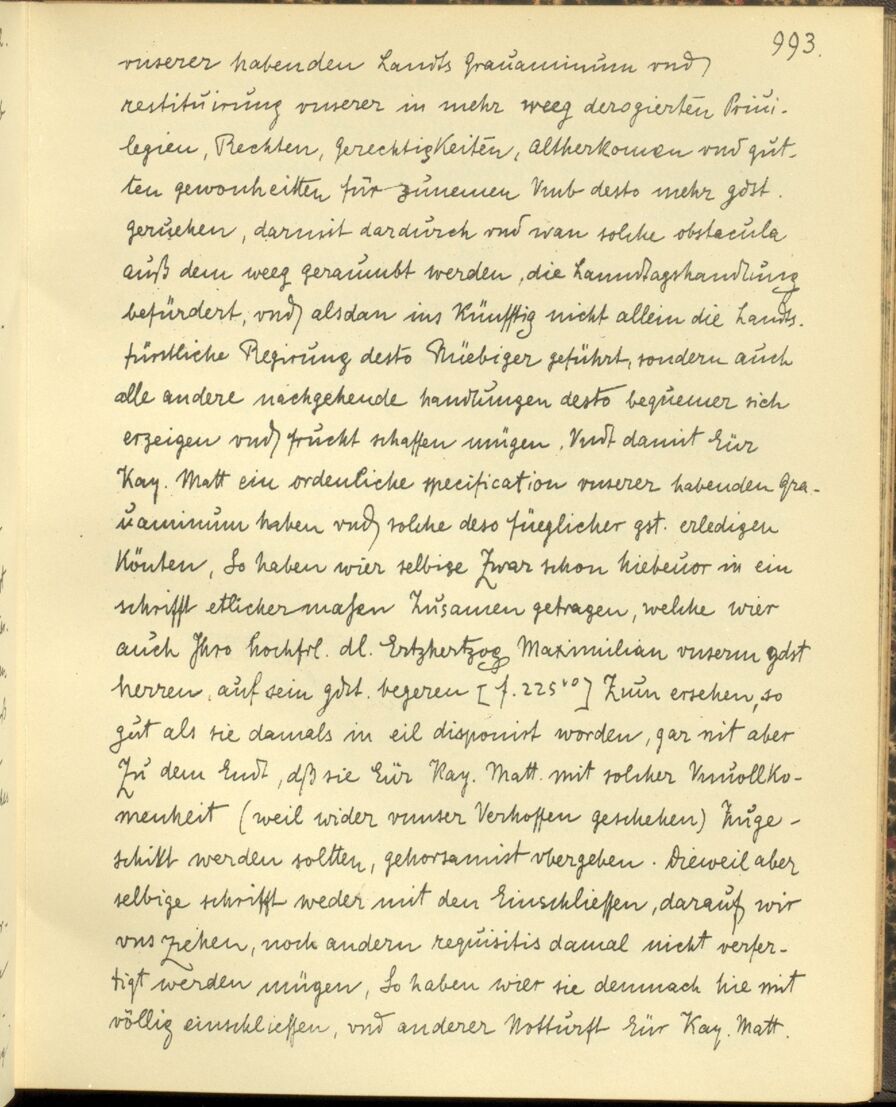 993.
vnserer habenden Landts Grauaminum vnd
restituirung vnserer in mehr weeg derogierten Priui-
legien, Rechten, Gerechtigkeiten, altherkomen vnd gut-
ten gewonheitten für zunemen Vmb desto mehr gdst.
geruehen, darmit dardurch vnd wan solche obstacula
auß dem weeg geraumbt werden, die Lanndtagshandlung
befürdert, vnd alsdan ins Künfftig nicht allein die Landts-
fürstliche Regirung desto Rüebiger geführt, sondern auch
alle andere nachgehende handlungen desto bequemer sich
erzeigen vnd frucht schaffen mügen. Vndt damit Eür
Kay. Matt ein ordenliche specification vnserer habenden Gra-
uaminum haben vnd solche deso füeglicher gst. erledigen
Könten, So haben wier selbige Zwar schon hiebeuor in ein
schrifft etlicher masen Zusamen getragen, welche wier
auch Ihro hochfrl. dl. Ertzhertzog Maximilian vnserm gdst
herren, auf sein gdst. begeren [f. 225vo] Zum ersehen, so
gut als sie damals in eil disponirt worden, gar nit aber
Zu dem Endt, dß sie Eür Kay. Matt. mit solcher Vnuollko-
menheit (weil wider vnnser Verhoffen geschehen) Zuge-
schikt werden soltten, gehorsamist vbergeben. Dieweil aber
selbige schrifft weder mit den Einschliessen, darauf wir
vns ziehen, noch andern requisitis damal nicht verfer-
tigt werden mügen, So haben wier sie demnach hie mit
völlig einschliessen, vnd anderer Notturft Eür Kay. Matt.